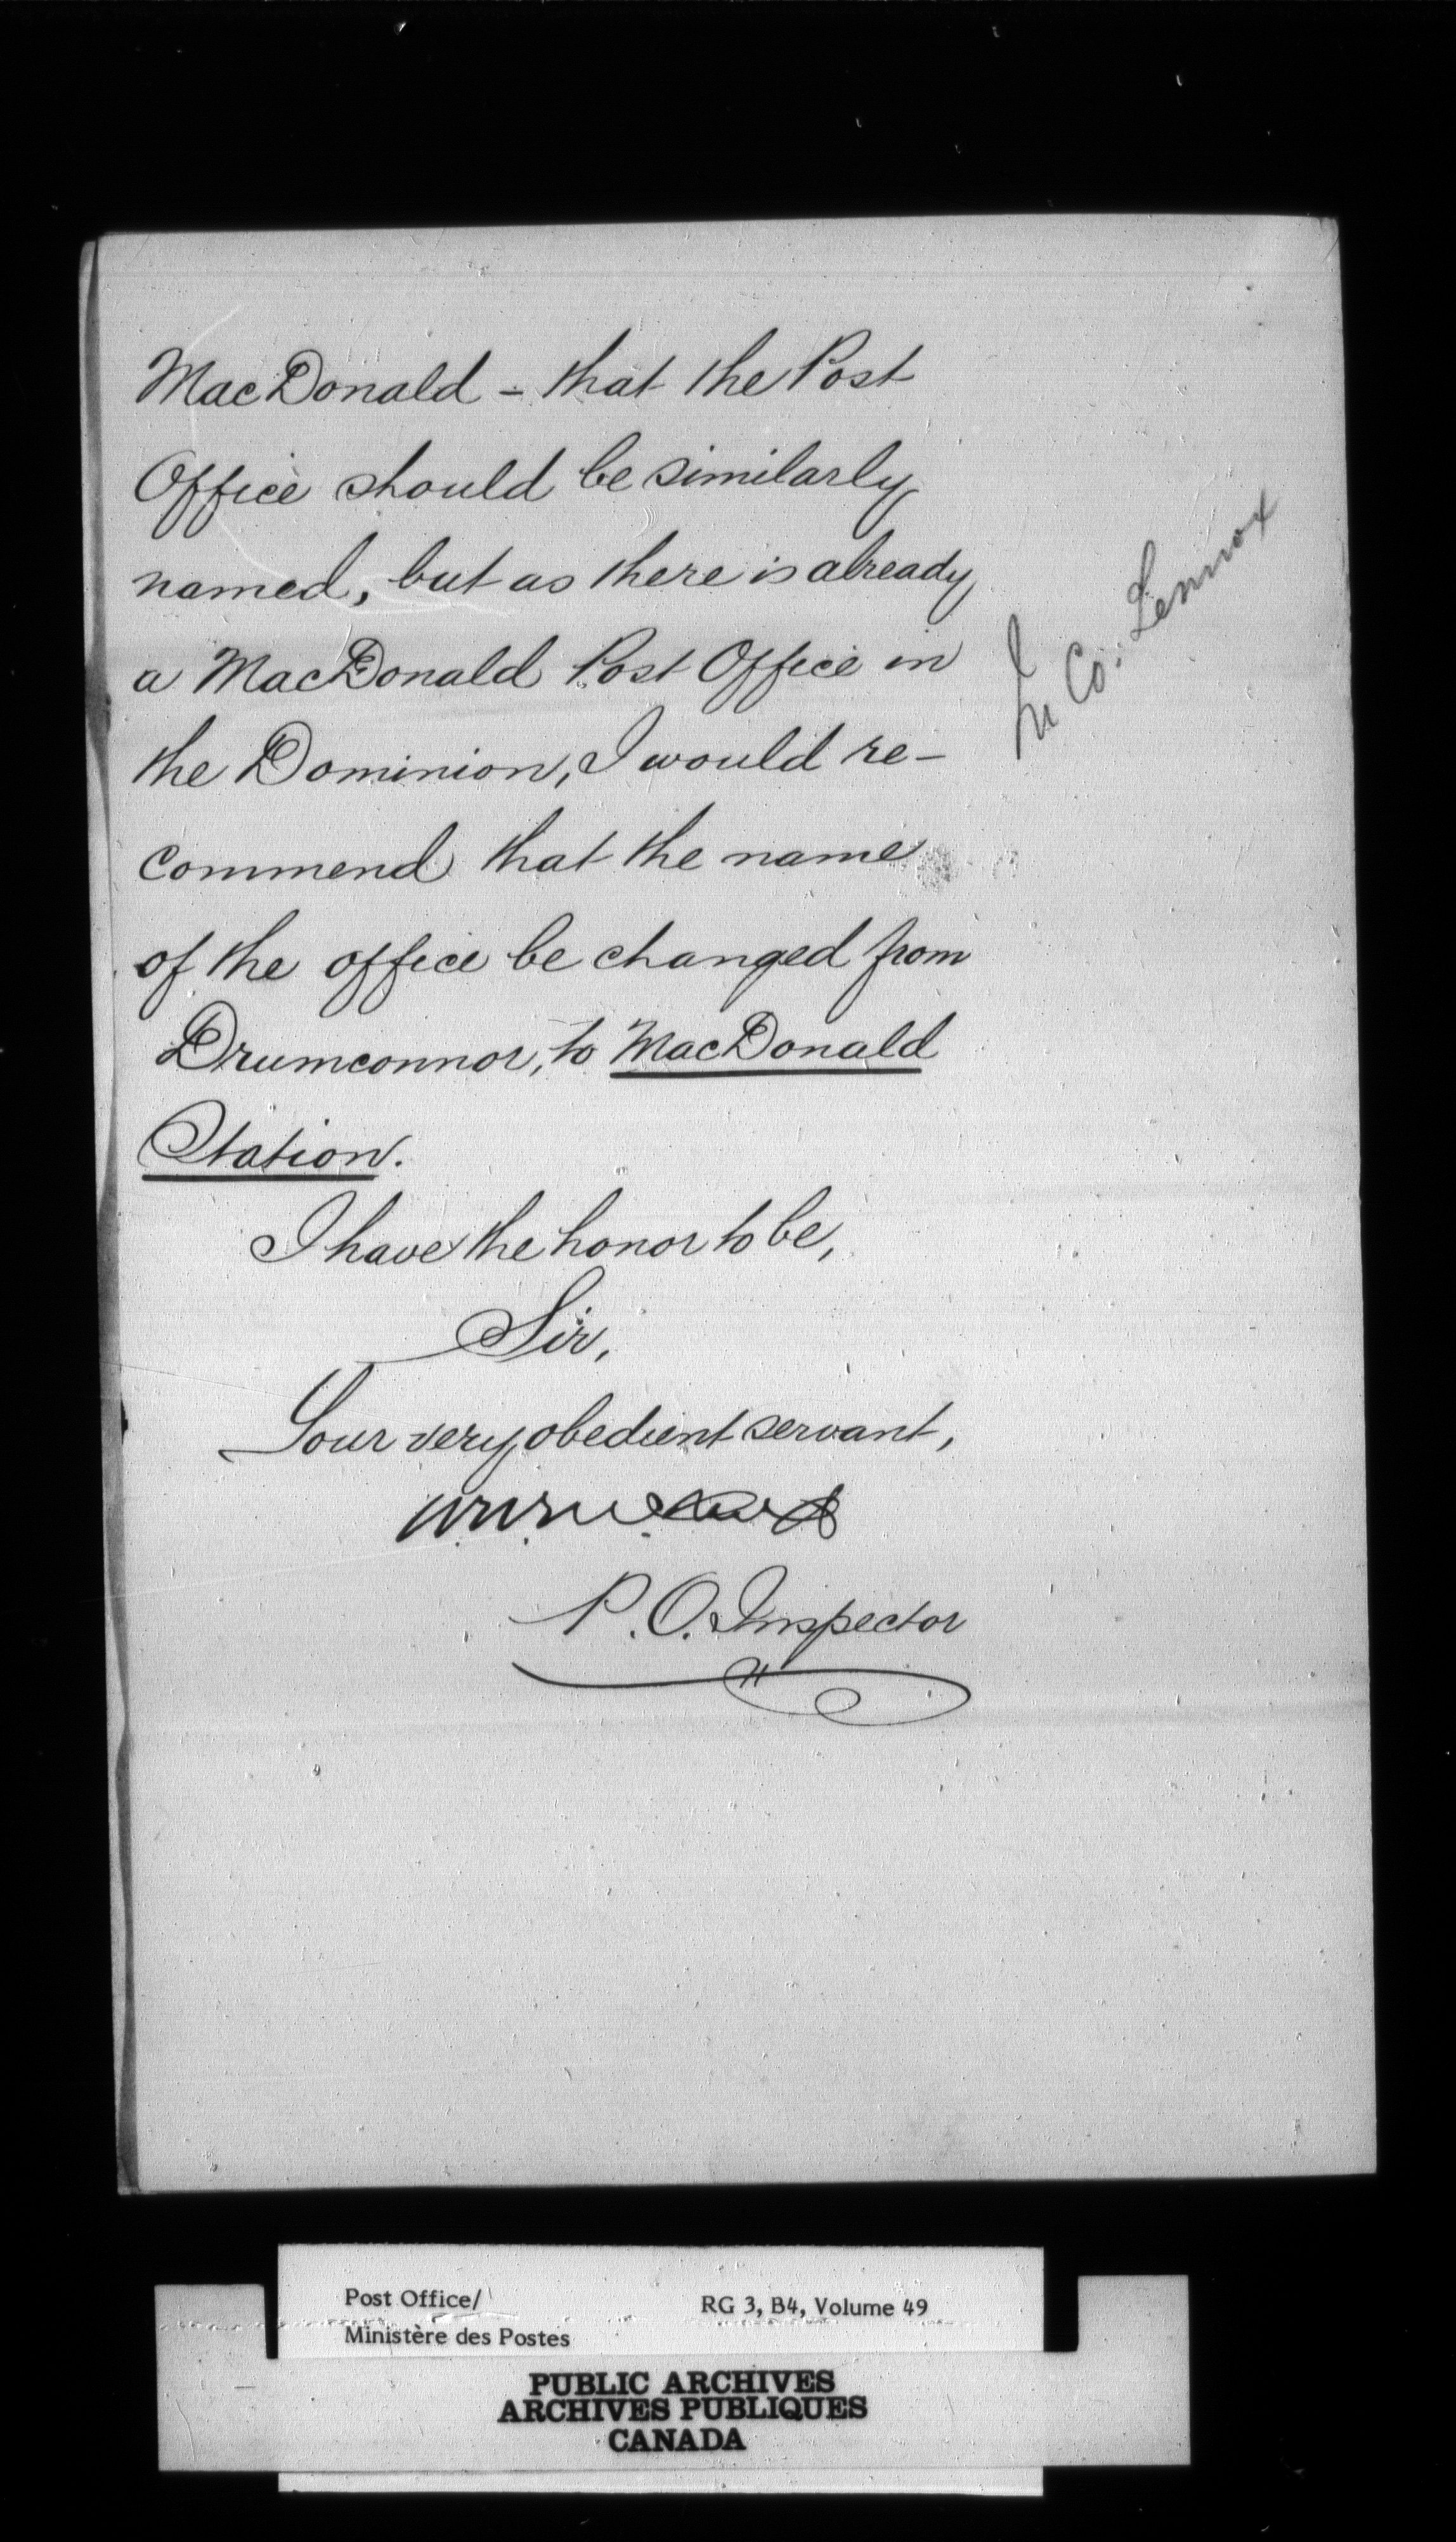 MacDonald – that the Post
Office should be similarly
named, but as there is already
a MacDonald Post Office in
the Dominion, I would re-
commend that the name
of the office be changed from
Drumconnor, to MacDonald
Station.
I have the honor to be,
Sir,
Your very obedient servant,
P. O. Inspector
In Co: Lennox
Post Office/
Ministère des Postes
RG 3, B4, Volume 49
PUBLIC ARCHIVES
ARCHIVES PUBLIQUES
CANADA